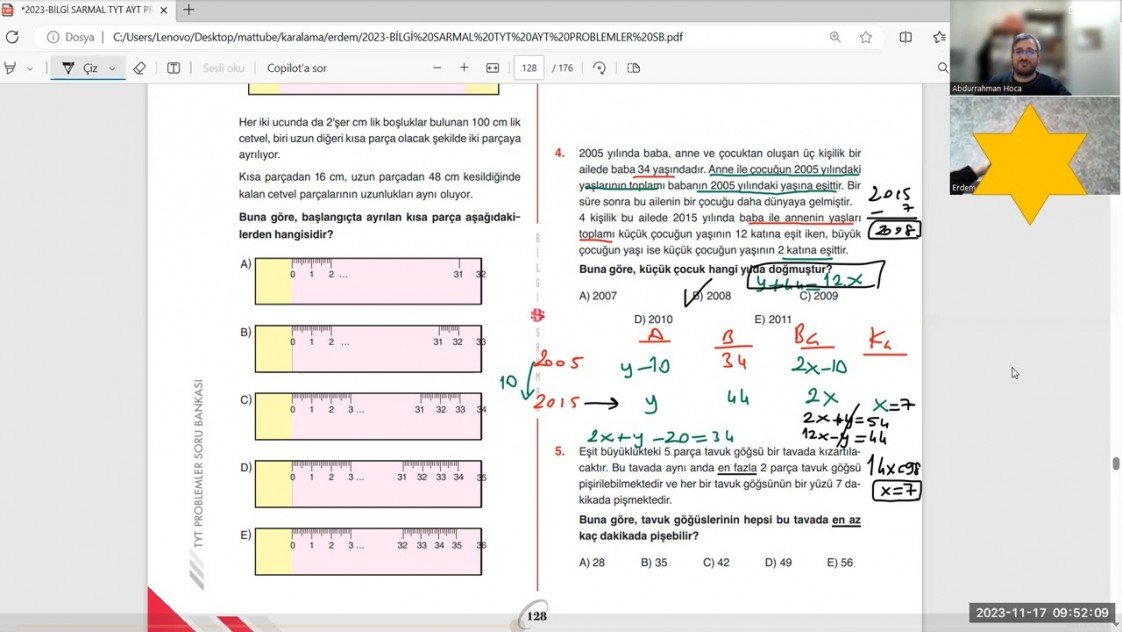 *2023-BİLGİ SARMAL TYT AYT PR
Dosya
C:/Users/Lenovo/Desktop/mattube/karalama/erdem/2023-BİLGİ%20SARMAL%20TYT%20AYT%20PROBLEMLER%20SB.pdf
Çiz
Sesli oku
Copilot'a sor
128 / 176
Abdurrahman Hoca
Erdem
Her iki ucunda da 2'şer cm lik boşluklar bulunan 100 cm lik
cetvel, biri uzun diğeri kısa parça olacak şekilde iki parçaya
ayrılıyor.
Kısa parçadan 16 cm, uzun parçadan 48 cm kesildiğinde
kalan cetvel parçalarının uzunlukları aynı oluyor.
Buna göre, başlangıçta ayrılan kısa parça aşağıdaki-
lerden hangisidir?
A) 0 1 2 ... 31 32
B) 0 1 2 ... 31 32 33
C) 0 1 2 3 ... 31 32 33 34
D) 0 1 2 3 ... 31 32 33 34 35
E) 0 1 2 3 ... 32 33 34 35 36
TYT PROBLEMLER SORU BANKASI
BİLGİ SARMAL
4. 2005 yılında baba, anne ve çocuktan oluşan üç kişilik bir
ailede baba 34 yaşındadır. Anne ile çocuğun 2005 yılındaki
yaşlarının toplamı babanın 2005 yılındaki yaşına eşittir. Bir
süre sonra bu ailenin bir çocuğu daha dünyaya gelmiştir.
4 kişilik bu ailede 2015 yılında baba ile annenin yaşları
toplamı küçük çocuğun yaşının 12 katına eşit iken, büyük
çocuğun yaşı ise küçük çocuğun yaşının 2 katına eşittir.
Buna göre, küçük çocuk hangi yılda doğmuştur?
A) 2007 B) 2008 C) 2009
D) 2010 E) 2011
2015
- 7
2008
y+44=12.x
A B BÇ KÇ
2005 y-10 34 2x-10
10
2015 → y 44 2x x=7
2x+y-20=34
2x+y=54
12x-y=44
14x=98
x=7
5. Eşit büyüklükteki 5 parça tavuk göğsü bir tavada kızartıla-
caktır. Bu tavada aynı anda en fazla 2 parça tavuk göğsü
pişirilebilmektedir ve her bir tavuk göğsünün bir yüzü 7 da-
kikada pişmektedir.
Buna göre, tavuk göğüslerinin hepsi bu tavada en az
kaç dakikada pişebilir?
A) 28 B) 35 C) 42 D) 49 E) 56
128
2023-11-17 09:52:09